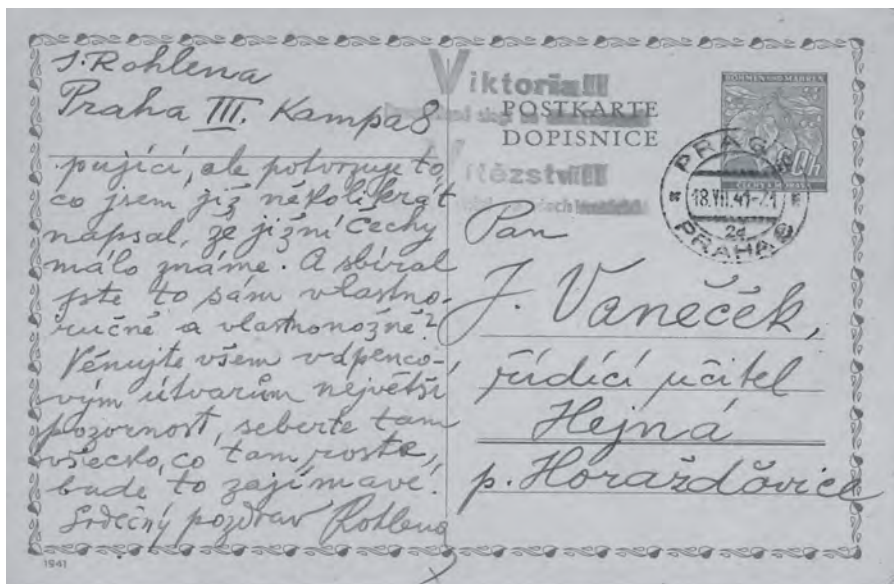 J. Rohlena
Praha III. Kampa 8
pující, ale potvrzuje to,
co jsem již několikrát
napsal, že jižní Čechy
málo známe. A sbíral
jste to sám vlastno-
ručně a vlastnonožně?
Věnujte všem vápenco-
vým útvarům největší
pozornost, seberte tam
všecko, co tam roste,
bude to zajímavé!
Srdečný pozdrav Rohlena
1941
Viktoria!!!
POSTKARTE
DOPISNICE
Vítězství!!!
BÖHMEN UND MÄHREN
60h
ČECHY A MORAVA
PRAG
18.VII.41-21
2d
PRAHA
Pan
J. Vaneček,
řídící učitel
Hejná
p. Horažďovice